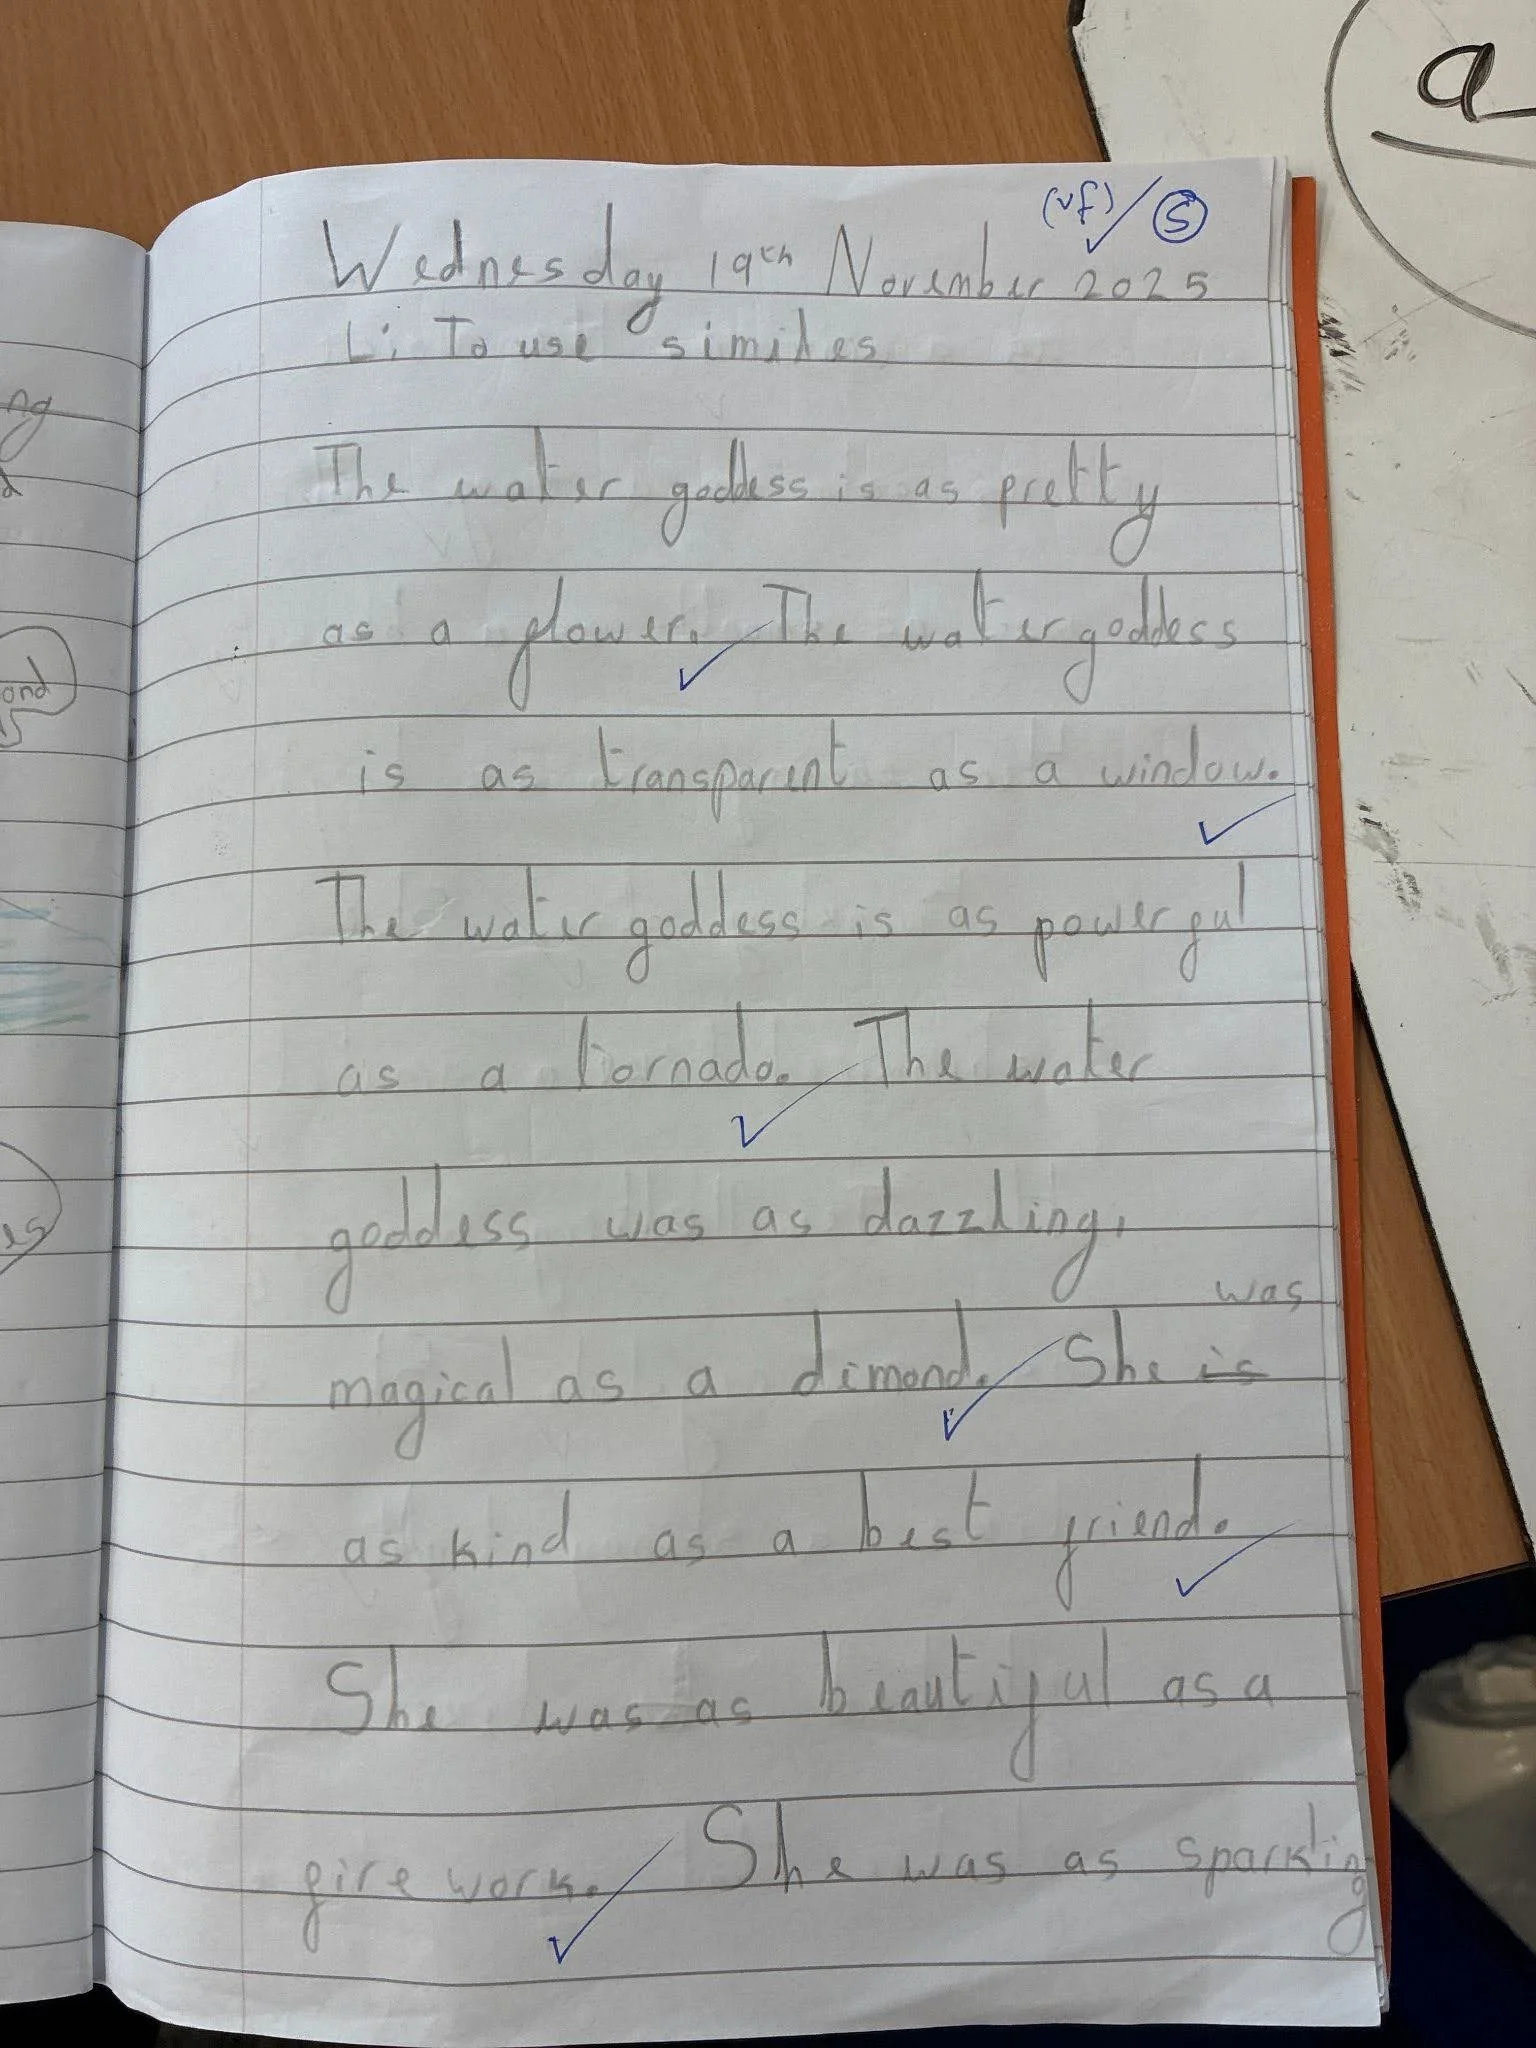 (vf) ✓ S
Wednesday 19th November 2025
Li To use similes
The water goddess is as pretty
as a flower. The water goddess
is as transparent as a window.
The water goddess is as powerful
as a tornado. The water
goddess was as dazzling,
was
magical as a dimond. She is
as kind as a best friend.
She was as beautiful as a
fire work. She was as sparkling
ng
and
es
a